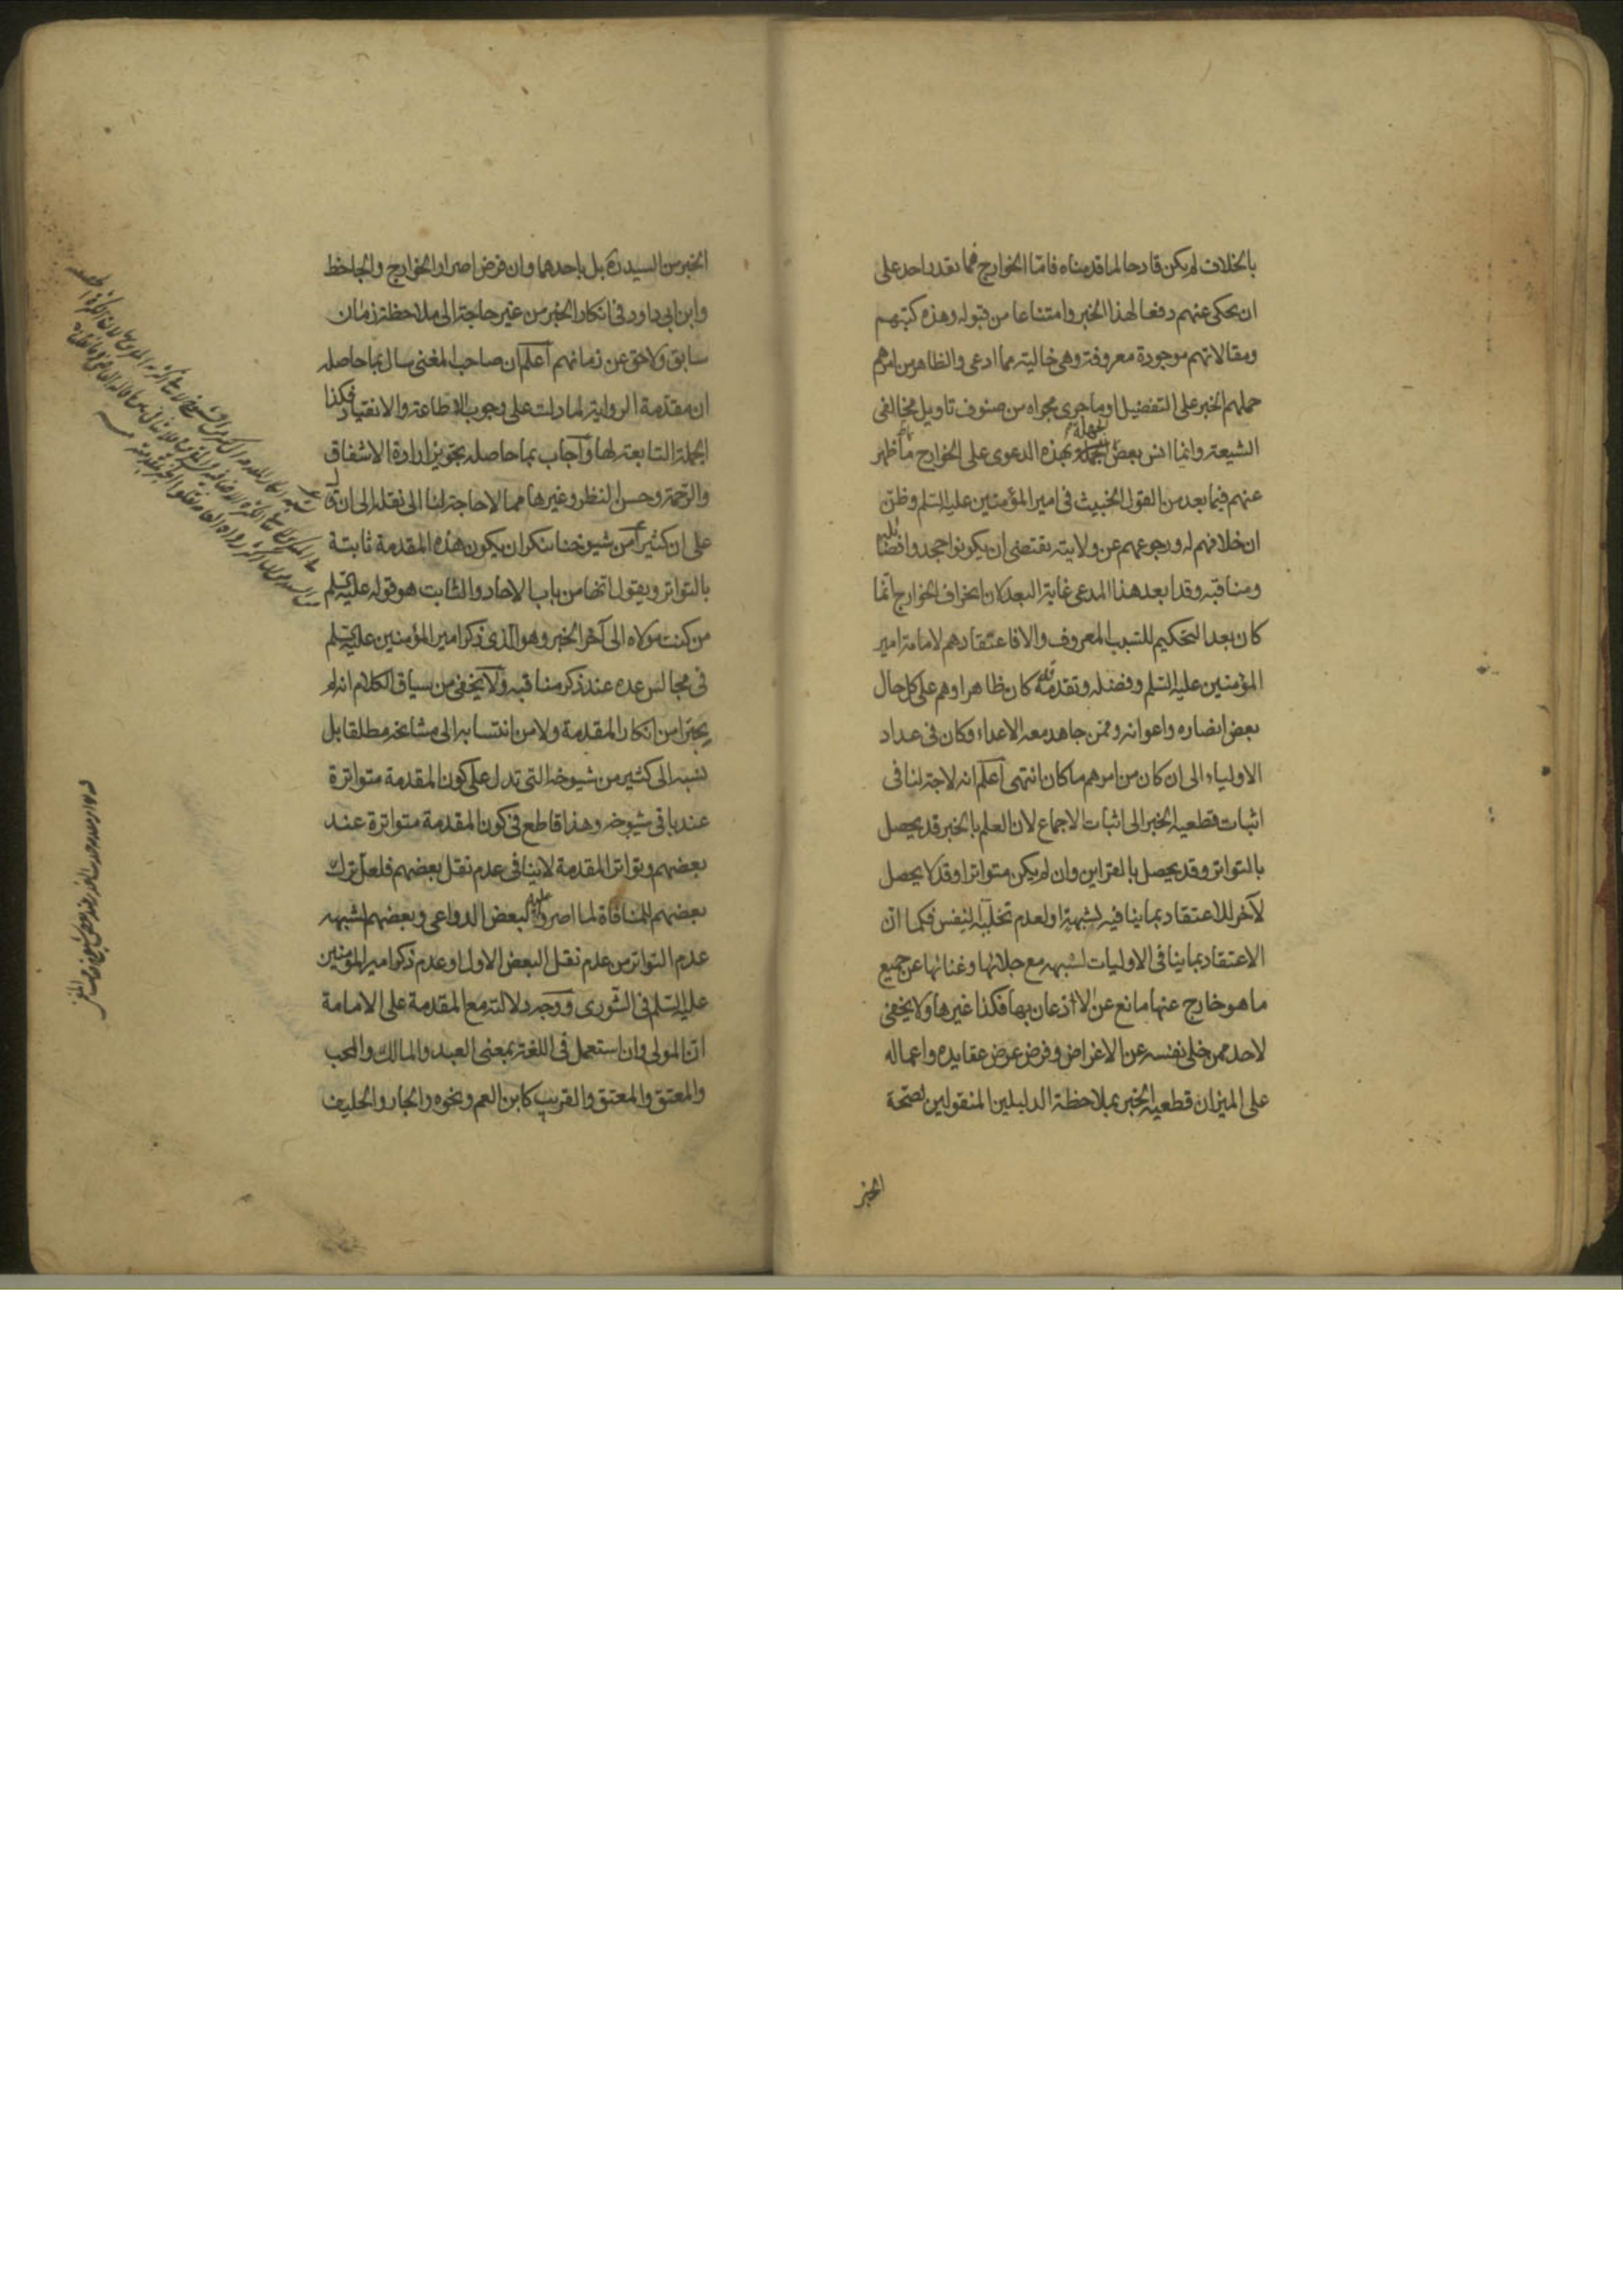 بالخلاف لم يكن قادحا لما قدمناه فاما الخوارج فما يقدر احد على
ان يحكى عنهم دفعا لهذا الخبر وامتناعا من قبوله وهذه كتبهم
ومقالاتهم موجودة معروفة وهى خالية مما ادعى والظاهر من امرهم
حملهم الخبر على التفضيل او ما جرى مجراه من صنوف تاويل مخالفى
الشيعة وانما انس بعض الجهلة بهذه الدعوى على الخوارج ما ظهر
عنهم فيما بعد من القول الخبيث فى امير المؤمنين عليه السلم وظن
ان خلافهم له ورجوعهم عن ولايته يقتضى ان يكونوا جحدوا فضائله
ومناقبه وقد ابعد هذا المدعى غاية البعد لان انحراف الخوارج انما
كان بعد التحكيم للسبب المعروف والا فاعتقادهم لامامة امير
المؤمنين عليه السلم وفضله وتقدمه كان ظاهرا وهم على كل حال
بعض انصاره واعوانه وممن جاهد معه الاعداء وكان فى عداد
الاولياء الى ان كان من امرهم ما كان انتهى اعلم انه لا حاجة لنا فى
اثبات قطعية الخبر الى اثبات الاجماع لان العلم بالخبر قد يحصل
بالتواتر وقد يحصل بالقراين وان لم يكن متواترا وقد لا يحصل
لآخر للاعتقاد بما ينافيه لشبهة او لعدم تخلية النفس فكما ان
الاعتقاد بما ينافى الاوليات لشبهة مع جلائها وغنائها عن جميع
ما هو خارج عنها مانع عن الاذعان بها فكذا غيرها ولا يخفى
لاحد ممن خلى نفسه عن الاغراض وفرض عرض عقايده واعماله
على الميزان قطعية الخبر بملاحظة الدليلين المنقولين لصحة
الخبر
الخبر من السيد ره بل باحدهما وان فرض اصرار الخوارج والجاحظ
وابن ابى داود فى انكار الخبر من غير حاجة الى ملاحظة زمان
سابق ولاحق عن زمانهم اعلم ان صاحب المغنى سال بما حاصله
ان مقدمة الرواية لما دلت على وجوب الاطاعة والانقياد فكذا
الجملة التابعة لها واجاب بما حاصله بتجويز ارادة الاشفاق
والرحمة وحسن النظر وغيرها مما لا حاجة لنا الى نقله الى ان قال
على ان كثيرا من شيوخنا ينكر ان يكون هذه المقدمة ثابتة
بالتواتر ويقول انها من باب الاحاد والثابت هو قوله عليه السلم
من كنت مولاه الى آخر الخبر وهو الذى ذكر امير المؤمنين عليه السلم
فى مجالس عدة عند ذكر مناقبه ولا يخفى من سياق الكلام انه لم
يجترأ من انكار المقدمة ولا من انتسابه الى مشايخه مطلقا بل
نسبه الى كثير من شيوخه التى تدل على كون المقدمة متواترة
عند باقى شيوخه وهذا قاطع فى كون المقدمة متواترة عند
بعضهم وتواتر المقدمة لا ينافى عدم نقل بعضهم فلعل ترك
بعضهم للمنافاة لما اصروا عليه لبعض الدواعى وبعضهم لشبهة
عدم التواتر من عدم نقل البعض الاول او عدم ذكر امير المؤمنين
عليه السلم فى الشورى ووجه دلالته مع المقدمة على الامامة
ان المولى وان استعمل فى اللغة بمعنى العبد والمالك والمحب
والمعتق والمعتق والقريب كابن العم ونحوه والجار والحليف